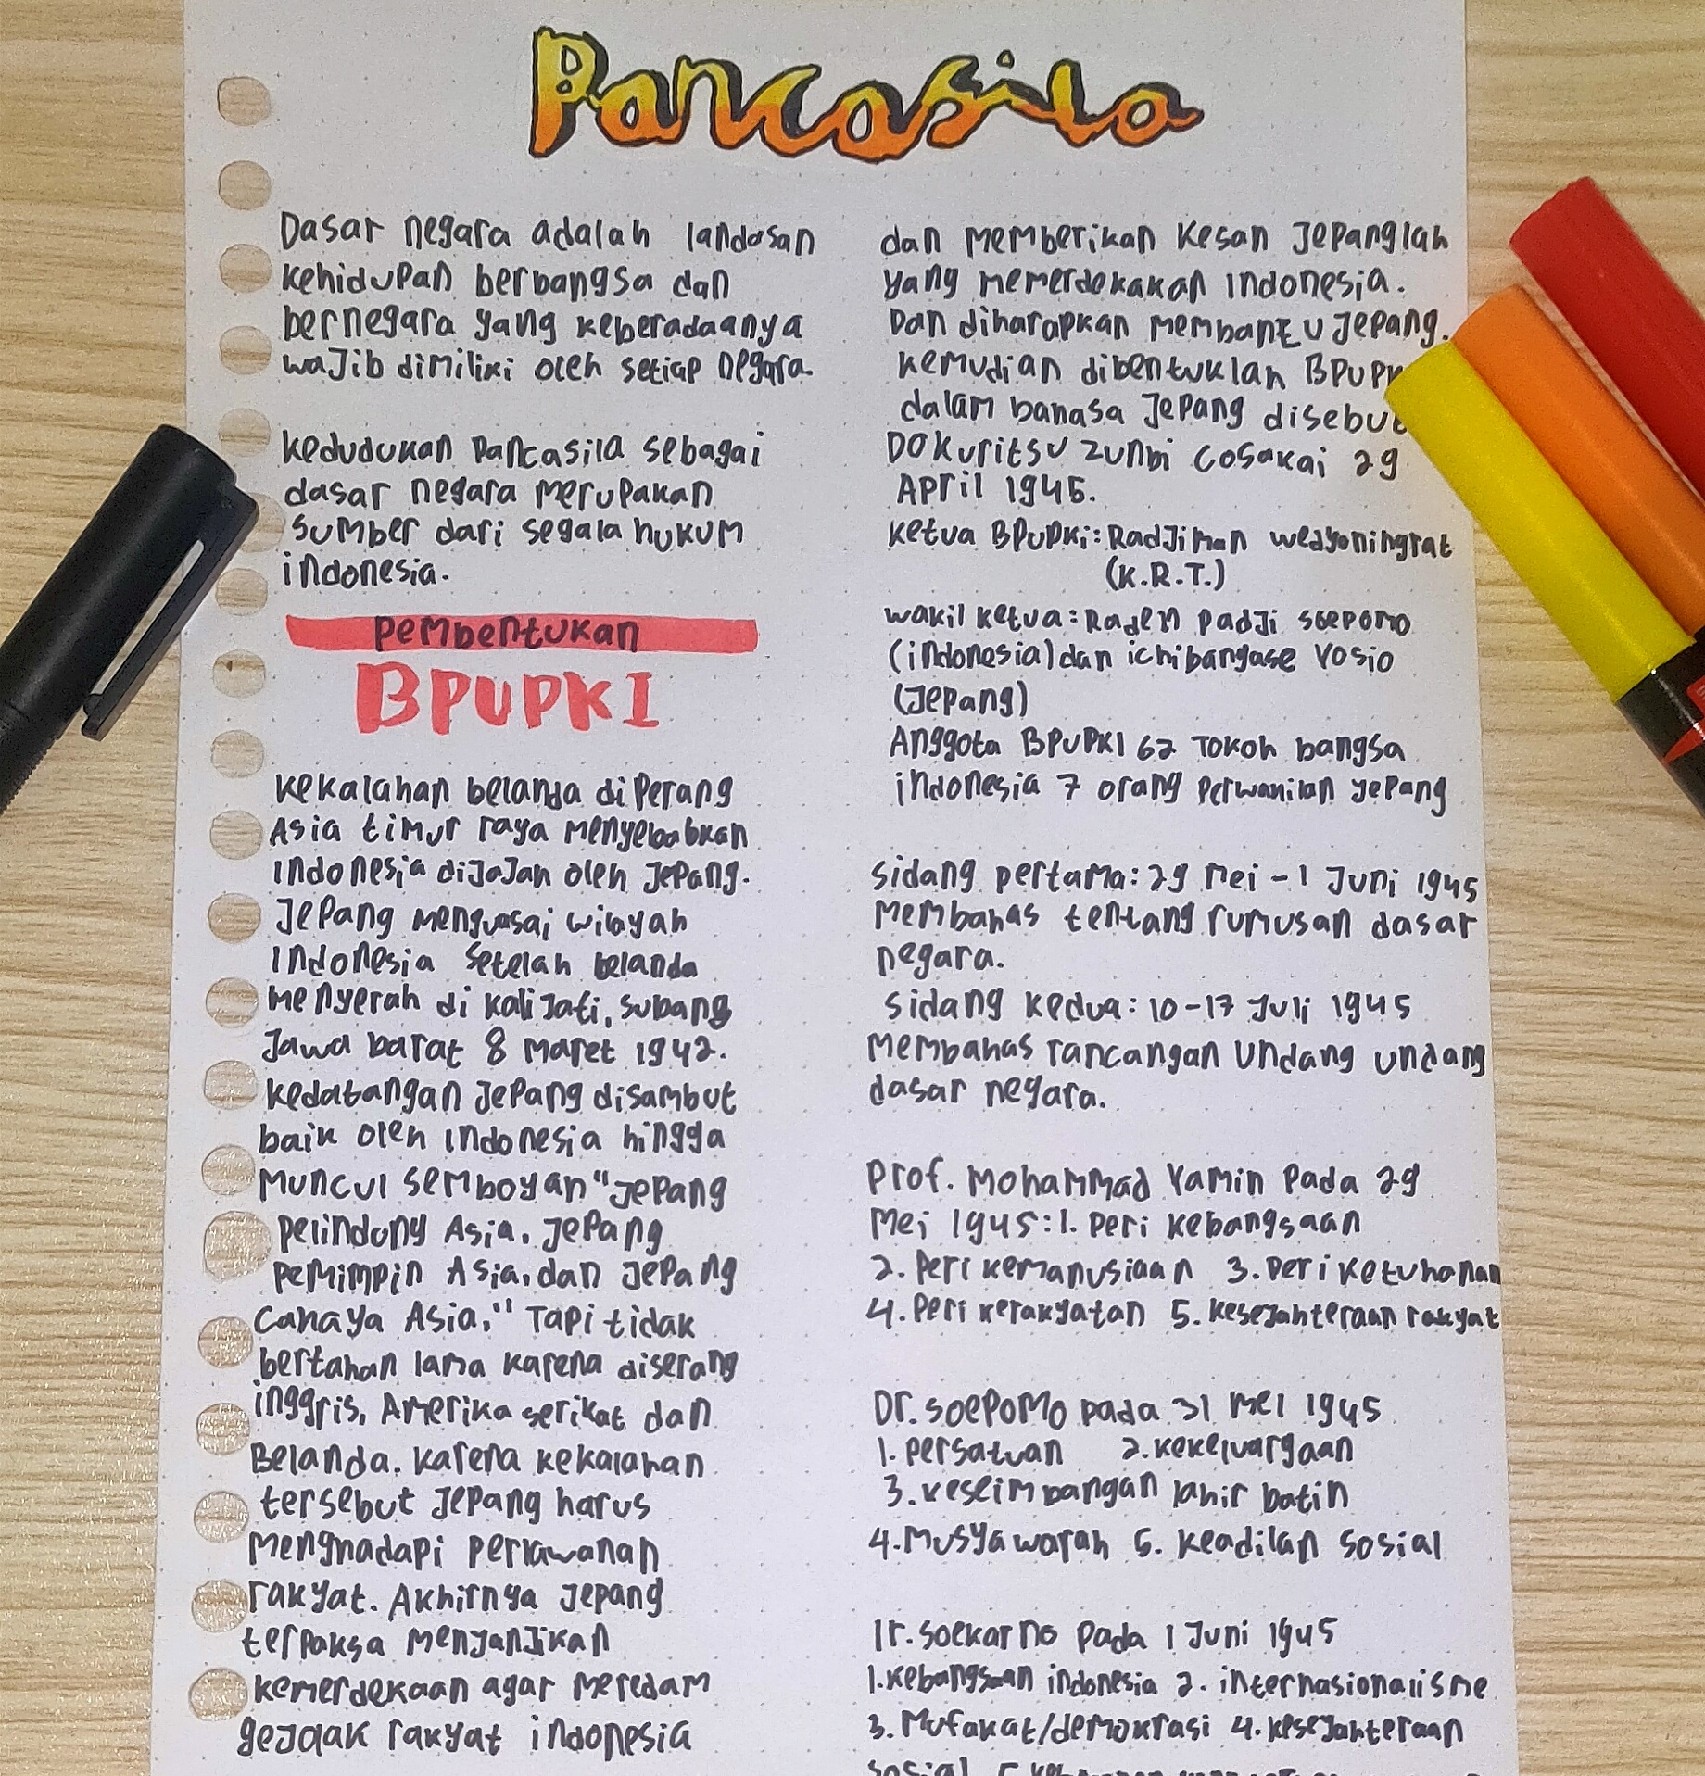 Pancasila
Dasar negara adalah landasan
kehidupan berbangsa dan
bernegara yang keberadaanya
wajib dimiliki oleh setiap negara.
kedudukan pancasila sebagai
dasar negara merupakan
sumber dari segala hukum
indonesia.
pembentukan
BPUPKI
kekalahan belanda di perang
Asia timur raya menyebabkan
indonesia dijajah oleh jepang.
jepang menguasai wilayah
indonesia setelah belanda
menyerah di kalijati, subang
jawa barat 8 maret 1942.
kedatangan jepang disambut
baik oleh indonesia hingga
muncul semboyan "jepang
pelindung Asia, jepang
pemimpin Asia, dan jepang
cahaya Asia." Tapi tidak
bertahan lama karena diserang
inggris, Amerika serikat dan
Belanda. karena kekalahan
tersebut jepang harus
menghadapi perlawanan
rakyat. Akhirnya jepang
terpaksa menjanjikan
kemerdekaan agar meredam
gejolak rakyat indonesia
dan memberikan kesan jepanglah
yang memerdekakan indonesia.
Dan diharapkan membantu jepang.
kemudian dibentuklah
dalam bahasa jepang disebut
Dokuritsu zunbi cosakai 29
April 1945.
ketua BPUPKI: Radjiman wedyoningrat
(K.R.T.)
wakil ketua: Raden padji soepomo
(indonesia) dan ichibangase Yosio
(jepang)
Anggota BPUPKI 62 Tokoh bangsa
indonesia 7 orang perwakilan jepang
sidang pertama: 29 mei - 1 juni 1945
membahas tentang rumusan dasar
negara.
sidang kedua: 10-17 juli 1945
membahas rancangan undang undang
dasar negara.
prof. mohammad yamin pada 29
mei 1945: 1. peri kebangsaan
2. peri kemanusiaan 3. peri ketuhanan
4. peri kerakyatan 5. kesejahteraan rakyat
Dr. soepomo pada 31 mei 1945
1. persatuan 2. kekeluargaan
3. keseimbangan lahir batin
4. Musyawarah 5. keadilan sosial
Ir. soekarno pada 1 juni 1945
1. kebangsaan indonesia 2. internasionalisme
3. Mufakat/demokrasi 4. kesejahteraan
sosial 5.